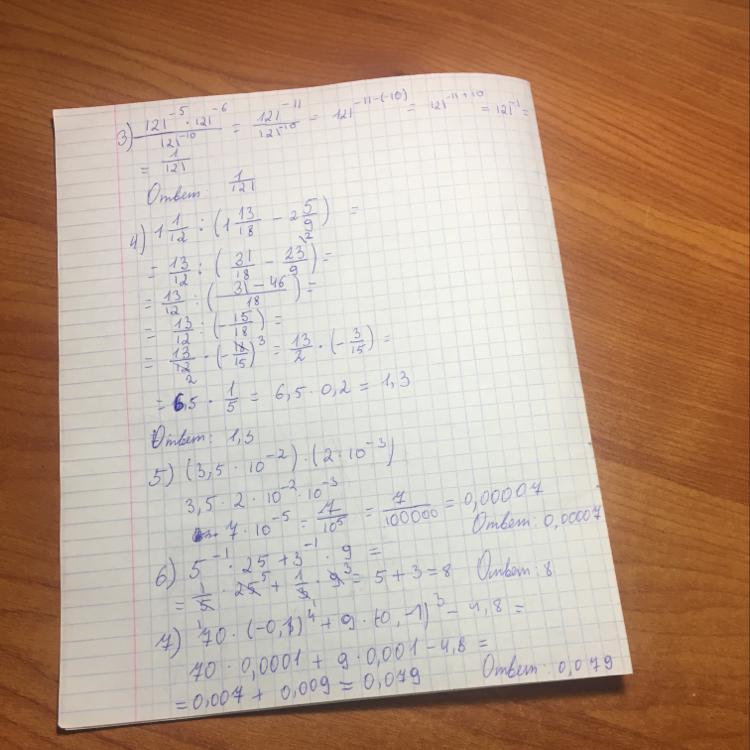 3) (121^-5 · 121^-6)/121^-10 = 121^-11/121^-10 = 121^-11-(-10) = 121^-11+10 = 121^-1 =
= 1/121
Ответ: 1/121
4) 1 1/12 : (1 13/18 - 2 5/9) =
= 13/12 : (31/18 - 23/9^2) =
= 13/12 : ((31-46)/18) =
= 13/12 : (-15/18) =
= 13/12 2 · (-18/15)^3 = 13/2 · (-3/15) =
= 6,5 · 1/5 = 6,5 · 0,2 = 1,3
Ответ: 1,3
5) (3,5 · 10^-2) · (2 · 10^-3)
3,5 · 2 · 10^-2 · 10^-3
7 · 10^-5 = 7/10^5 = 7/100000 = 0,00007
Ответ: 0,00007
6) 5^-1 · 25 + 3^-1 · 9 =
= 1/5 · 25^5 + 1/3 · 9^3 = 5 + 3 = 8 Ответ: 8
7) 70 · (-0,1)^4 + 9 · (0,-1)^3 - 4,8 =
70 · 0,0001 + 9 · 0,001 - 4,8 =
= 0,007 + 0,009 = 0,079 Ответ: 0,079